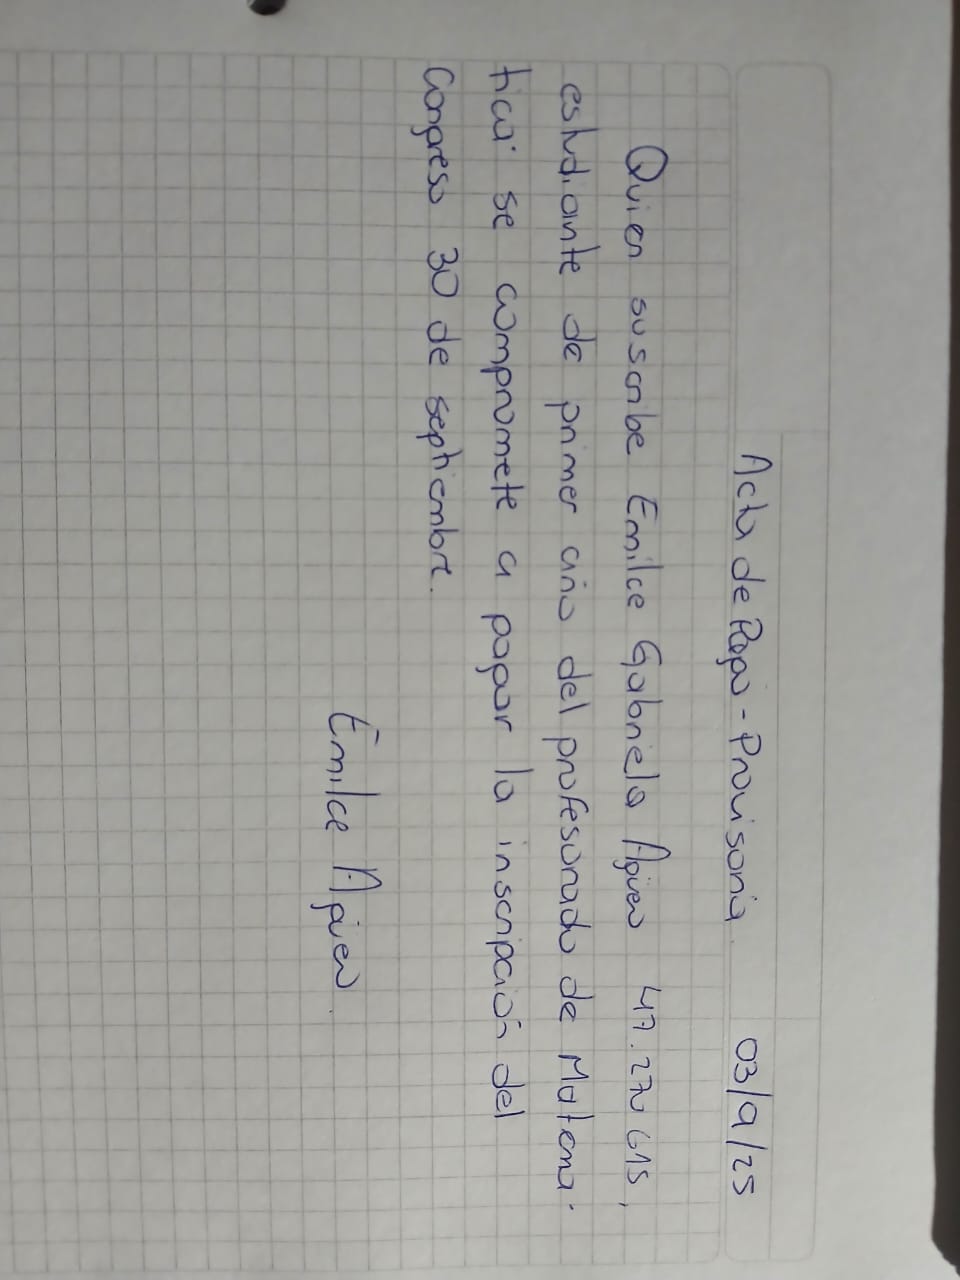 Acta de Pago - Provisoria 03/9/25
Quien suscribe Emilce Gabriela Agüero 47.270 615,
estudiante de primer año del profesorado de Matemá-
tica se compromete a pagar la inscripción del
Congreso 30 de septiembre.
Emilce Agüero.